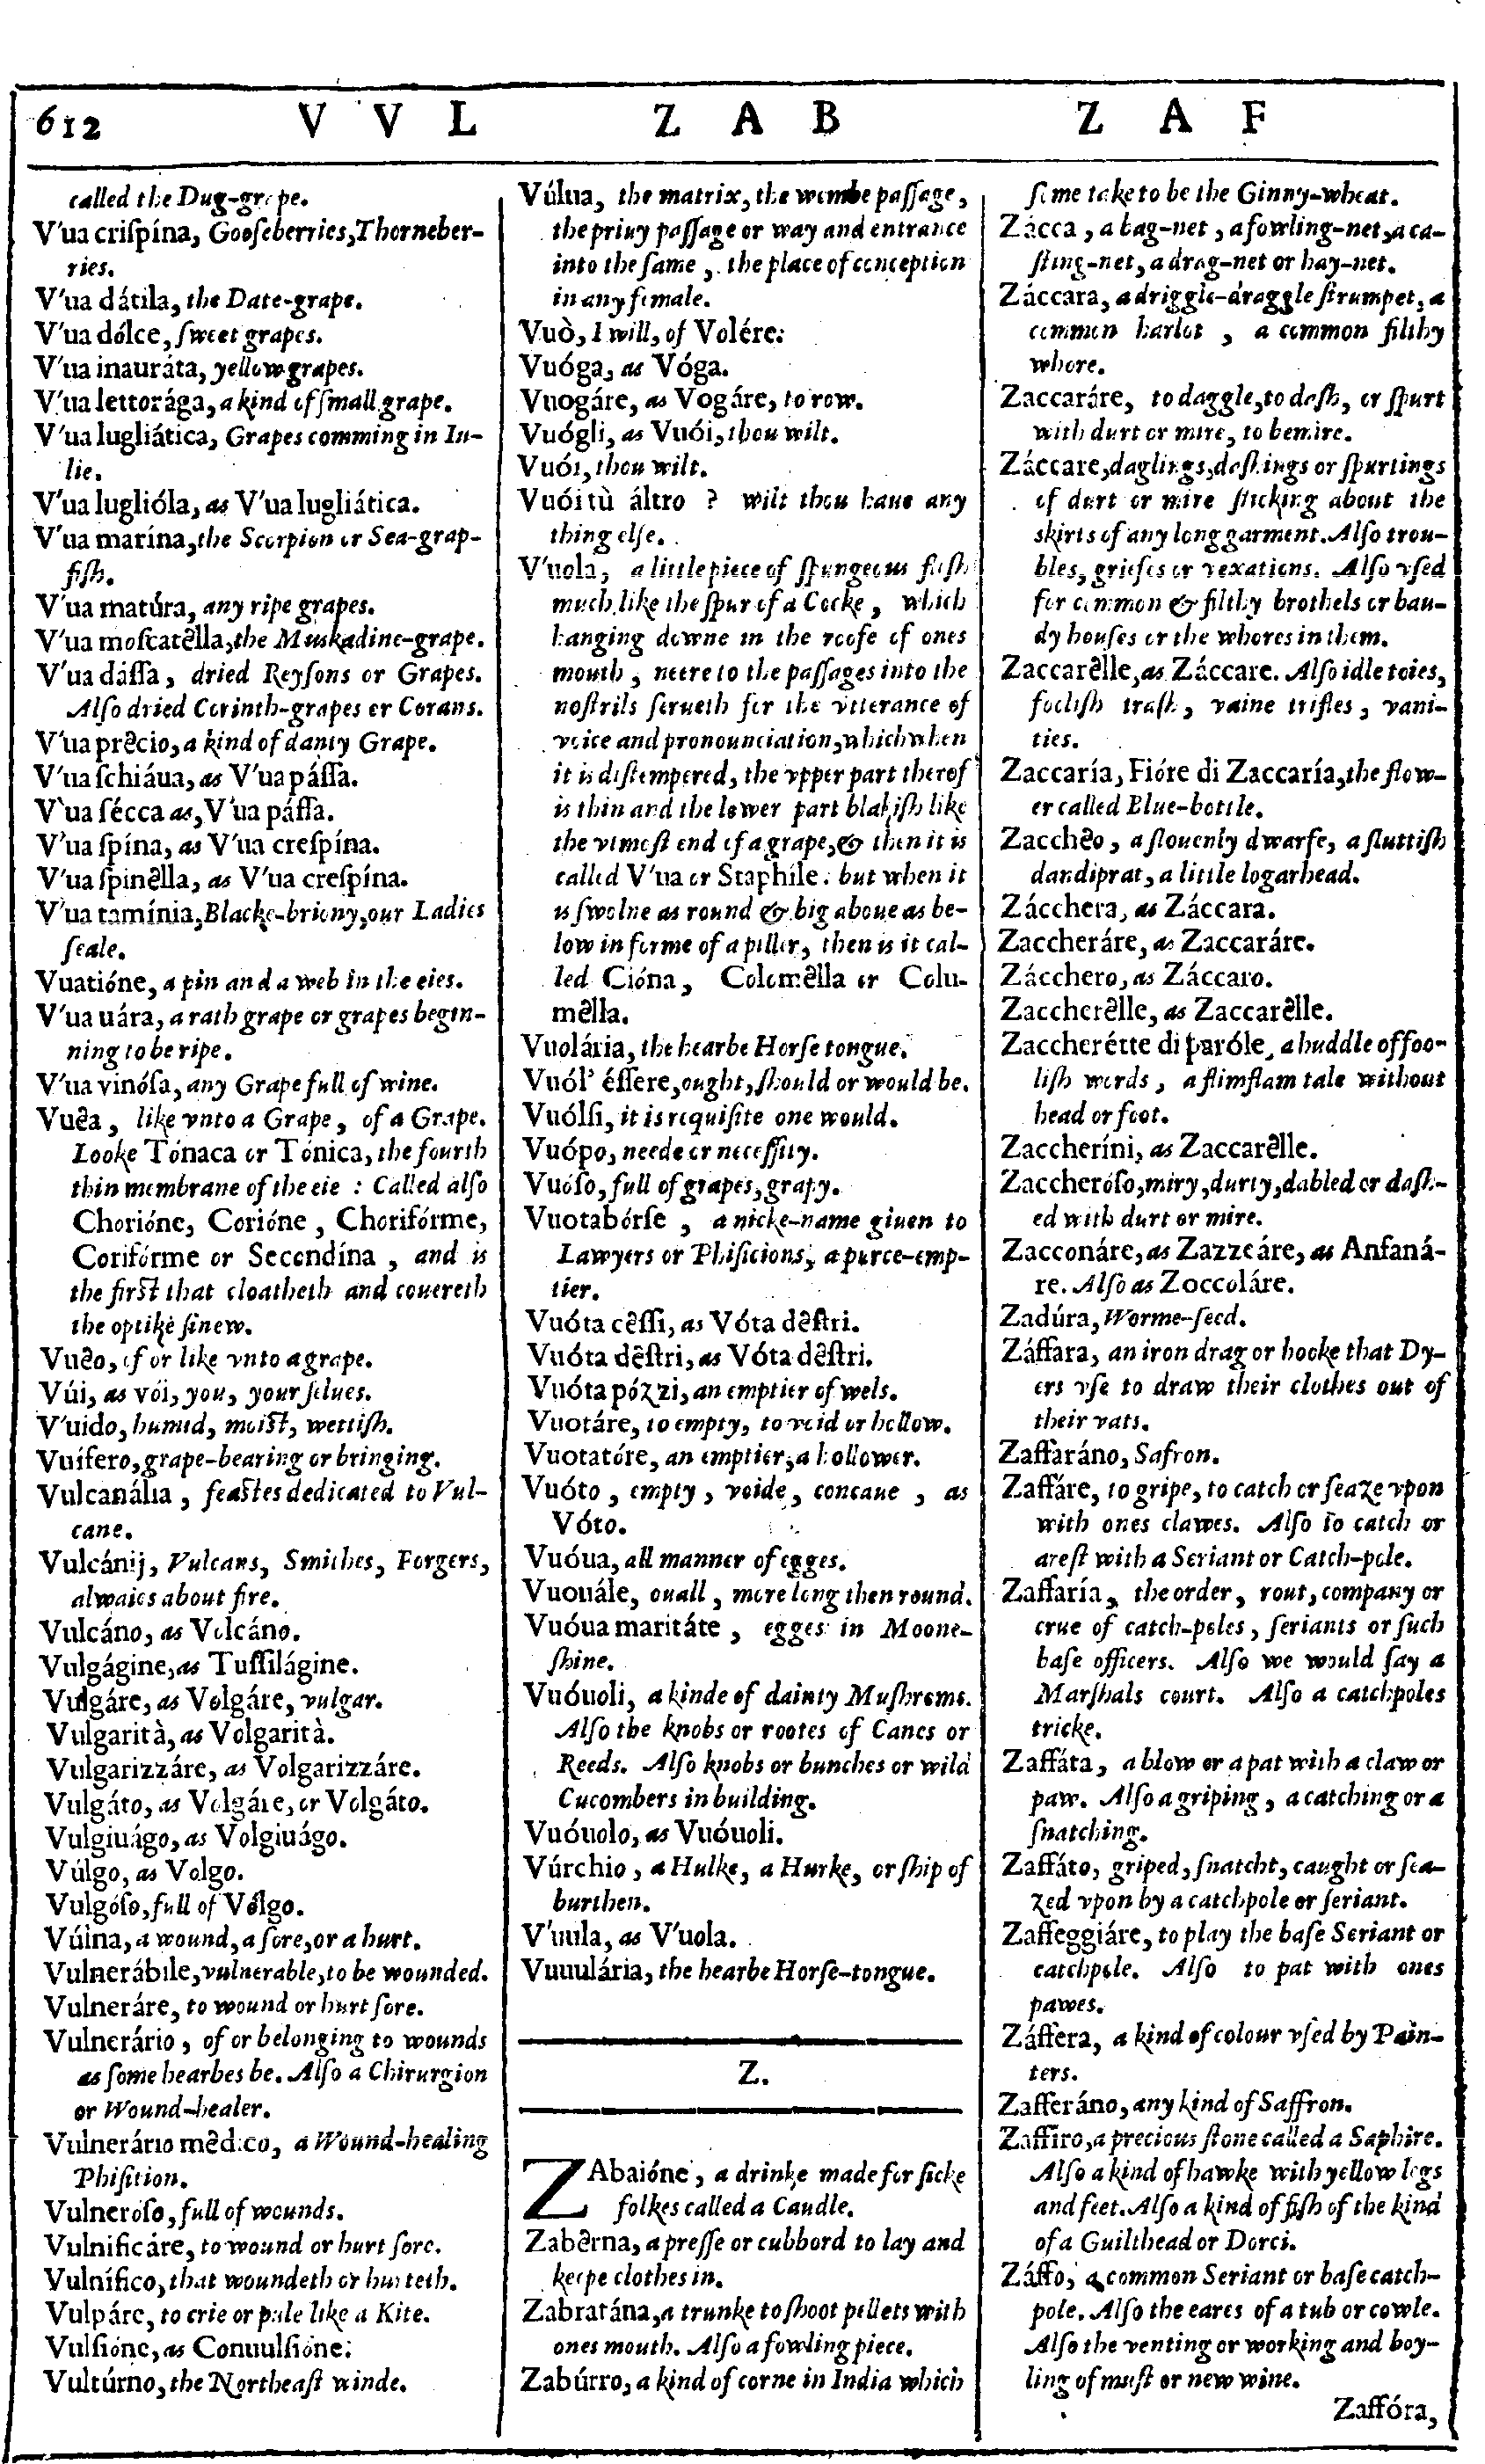 612 V V L Z A B Z A F
called the Dug-grape.
V'ua criſpína, Gooſeberries, Thorneber-
ries.
V'ua dátila, the Date-grape.
V'ua dólce, ſweet grapes.
V'ua inauráta, yellow grapes.
V'ua lettorága, a kind of ſmall grape.
V'ua lugliática, Grapes comming in Iu-
lie.
V'ua luglióla, as V'ua lugliática.
V'ua marína, the Scorpion or Sea-grap-
fiſh.
V'ua matúra, any ripe grapes.
V'ua moſcatêlla, the Muskadine-grape.
V'ua dáſſa, dried Reyſons or Grapes.
Alſo dried Corinth-grapes or Corans.
V'ua prêcio, a kind of danty Grape.
V'ua ſchiáua, as V'ua páſſa.
V'ua ſécca as, V'ua páſſa.
V'ua ſpína, as V'ua creſpína.
V'ua ſpinêlla, as V'ua creſpína.
V'ua tamínia, Blacke-briony, our Ladies
ſeale.
Vuatióne, a pin and a web in the eies.
V'ua uára, a rath grape or grapes begin-
ning to be ripe.
V'ua vinóſa, any Grape full of wine.
Vuêa, like vnto a Grape, of a Grape.
Looke Tónaca or Tónica, the fourth
thin membrane of the eie : Called alſo
Chorióne, Corióne, Chorifórme,
Corifórme or Secondína, and is
the firſt that cloatheth and couereth
the optike ſinew.
Vuêo, of or like vnto a grape.
Vúi, as vói, you, your ſelues.
V'uido, humid, moiſt, wettiſh.
Vuífero, grape-bearing or bringing.
Vulcanália, feaſtes dedicated to Vul-
cane.
Vulcánij, Vulcans, Smithes, Forgers,
alwaies about fire.
Vulcáno, as Volcáno.
Vulgágine, as Tuſſilágine.
Vulgáre, as Volgáre, vulgar.
Vulgarità, as Volgarità.
Vulgarizzáre, as Volgarizzáre.
Vulgáto, as Volgáre, or Volgáto.
Vulgiuágo, as Volgiuágo.
Vúlgo, as Volgo.
Vulgóſo, full of Vólgo.
Vúlna, a wound, a ſore, or a hurt.
Vulnerábile, vulnerable, to be wounded.
Vulneráre, to wound or hurt ſore.
Vulnerário, of or belonging to wounds
as ſome hearbes be. Alſo a Chirurgion
or Wound-healer.
Vulnerário mêdico, a Wound-healing
Phiſition.
Vulneróſo, full of wounds.
Vulnificáre, to wound or hurt ſore.
Vulnífico, that woundeth or hurteth.
Vulpáre, to crie or pule like a Kite.
Vulſióne, as Conuulſióne:
Vultúrno, the Northeaſt winde.
Vúlua, the matrix, the wombe paſſage,
the priuy paſſage or way and entrance
into the ſame, the place of conception
in any female.
Vuò, I will, of Volére:
Vuóga, as Vóga.
Vuogáre, as Vogáre, to row.
Vuógli, as Vuói, thou wilt.
Vuói, thou wilt.
Vuói tù áltro ? wilt thou haue any
thing elſe.
V'uola, a little piece of ſpungeous fleſh
much like the ſpur of a Cocke, which
hanging downe in the roofe of ones
mouth, neere to the paſſages into the
noſtrils ſerueth for the vtterance of
voice and pronounciation, which when
it is diſtempered, the vpper part therof
is thin and the lower part blakiſh like
the vtmoſt end of a grape, & then it is
called V'ua or Staphile: but when it
is ſwolne as round & big aboue as be-
low in forme of a piller, then is it cal-
led Cióna, Colomêlla or Colu-
mêlla.
Vuolária, the hearbe Horſe tongue.
Vuól' éſſere, ought, ſhould or would be.
Vuólſi, it is requiſite one would.
Vuópo, neede or neceſſity.
Vuóſo, full of grapes, grapy.
Vuotabórſe, a nicke-name giuen to
Lawyers or Phiſicions, a purce-emp-
tier.
Vuóta cêſſi, as Vóta dêſtri.
Vuóta dêſtri, as Vóta dêſtri.
Vuóta pózzi, an emptier of wels.
Vuotáre, to empty, to void or hollow.
Vuotatóre, an emptier, a hollower.
Vuóto, empty, voide, concaue, as
Vóto.
Vuóua, all manner of egges.
Vuouále, ouall, more long then round.
Vuóua maritáte, egges in Moone-
ſhine.
Vuóuoli, a kinde of dainty Muſhroms.
Alſo the knobs or rootes of Canes or
Reeds. Alſo knobs or bunches or wild
Cucombers in building.
Vuóuolo, as Vuóuoli.
Vúrchio, a Hulke, a Hurke, or ſhip of
burthen.
V'uula, as V'uola.
Vuuulária, the hearbe Horſe-tongue.
Z.
ZAbaióne, a drinke made for ſicke
folkes called a Caudle.
Zabêrna, a preſſe or cubbord to lay and
keepe clothes in.
Zabratána, a trunke to ſhoot pellets with
ones mouth. Alſo a fowling piece.
Zabúrro, a kind of corne in India which
ſome take to be the Ginny-wheat.
Zácca, a bag-net, a fowling-net, a ca-
ſting-net, a drag-net or hay-net.
Záccara, a driggle-draggle ſtrumpet, a
common harlot, a common filthy
whore.
Zaccaráre, to daggle, to daſh, or ſpurt
with durt or mire, to bemire.
Záccare, daglings, daſhings or ſpurtings
of durt or mire ſticking about the
skirts of any long garment. Alſo trou-
bles, griefes or vexations. Alſo vſed
for common & filthy brothels or bau-
dy houſes or the whores in them.
Zaccarêlle, as Záccare. Alſo idle toies,
fooliſh traſh, vaine trifles, vani-
ties.
Zaccaría, Fióre di Zaccaría, the flow-
er called Blue-bottle.
Zacchêo, a ſlouenly dwarfe, a ſluttiſh
dandiprat, a little logarhead.
Zácchera, as Záccara.
Zaccheráre, as Zaccaráre.
Zácchero, as Záccaro.
Zaccherêlle, as Zaccarêlle.
Zaccherétte di paróle, a huddle of foo-
liſh words, a flimflam tale without
head or foot.
Zaccheríni, as Zaccarêlle.
Zaccheróſo, miry, durty, dabled or daſh-
ed with durt or mire.
Zacconáre, as Zazzeáre, as Anfaná-
re. Alſo as Zoccoláre.
Zadúra, Worme-ſeed.
Záffara, an iron drag or hooke that Dy-
ers vſe to draw their clothes out of
their vats.
Zaffaráno, Safron.
Zaffáre, to gripe, to catch or ſeaze vpon
with ones clawes. Alſo to catch or
areſt with a Seriant or Catch-pole.
Zaffaría, the order, rout, company or
crue of catch-poles, ſeriants or ſuch
baſe officers. Alſo we would ſay a
Marſhals court. Alſo a catchpoles
tricke.
Zaffáta, a blow or a pat with a claw or
paw. Alſo a griping, a catching or a
ſnatching.
Zaffáto, griped, ſnatcht, caught or ſea-
zed vpon by a catchpole or ſeriant.
Zaffeggiáre, to play the baſe Seriant or
catchpole. Alſo to pat with ones
pawes.
Záffera, a kind of colour vſed by Pain-
ters.
Zafferáno, any kind of Saffron.
Zaffiro, a precious ſtone called a Saphire.
Alſo a kind of hawke with yellow legs
and feet. Alſo a kind of fiſh of the kind
of a Guilthead or Dorci.
Záffo, a common Seriant or baſe catch-
pole. Alſo the eares of a tub or cowle.
Alſo the venting or working and boy-
ling of muſt or new wine.
Zaffóra,